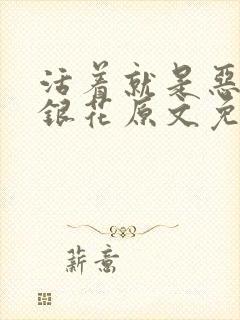 活着就是恶
银花原文免
薪意